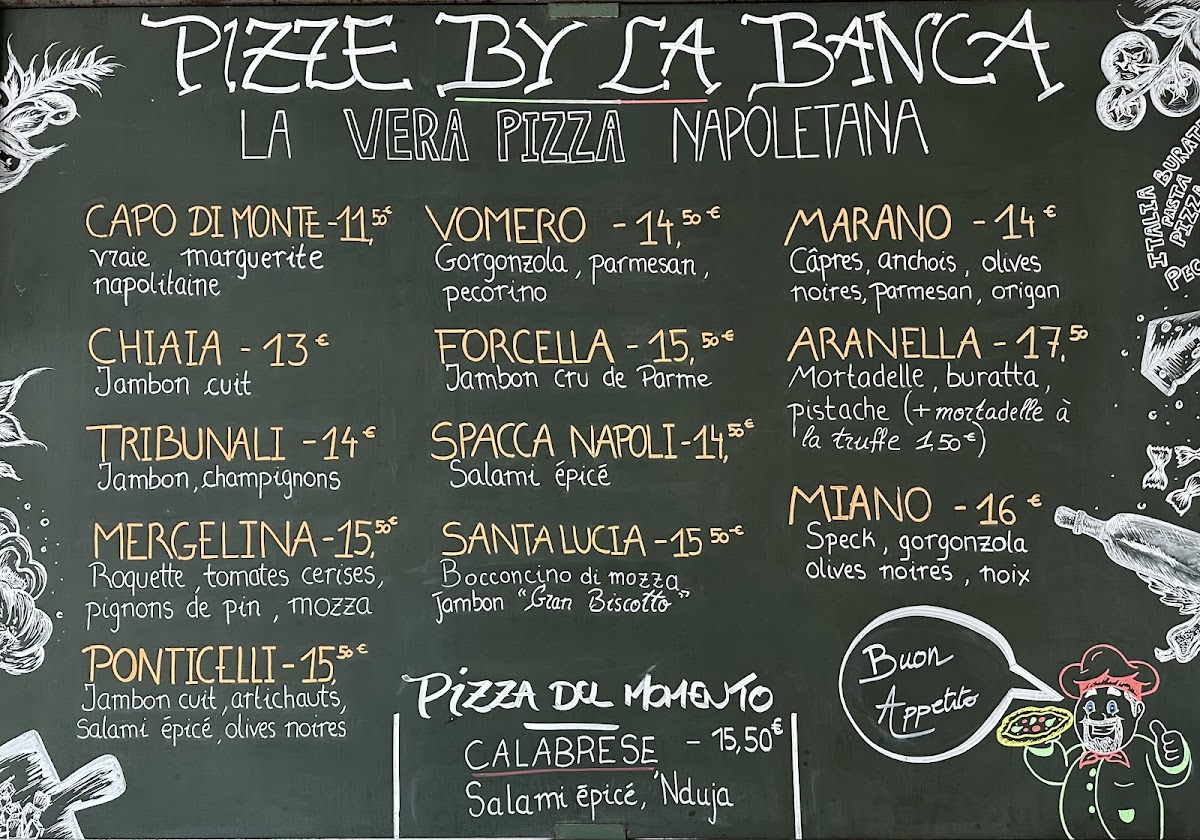 PIZZE BY LA BANCA
LA VERA PIZZA NAPOLETANA
CAPO DI MONTE - 11,50€
vraie marguerite
napolitaine
CHIAIA - 13€
Jambon cuit
TRIBUNALI - 14€
Jambon, champignons
MERGELINA - 15,50€
Roquette, tomates cerises,
pignons de pin, mozza
PONTICELLI - 15,50€
Jambon cuit, artichauts,
Salami épicé, olives noires
VOMERO - 14,50€
Gorgonzola, parmesan,
pecorino
FORCELLA - 15,50€
Jambon cru de Parme
SPACCA NAPOLI - 14,50€
Salami épicé
SANTA LUCIA - 15 50€
Bocconcino di mozza
Jambon "Gran Biscotto"
PIZZA DEL MOMENTO
CALABRESE - 15,50€
Salami épicé, 'Nduja
MARANO - 14€
Câpres, anchois, olives
noires, parmesan, origan
ARANELLA - 17,50
Mortadelle, buratta,
pistache (+ mortadelle à
la truffe 1,50€)
MIANO - 16€
Speck, gorgonzola
olives noires, noix
Buon
Appetito
ITALIA BURAT
PASTA
PIZZA
PEC